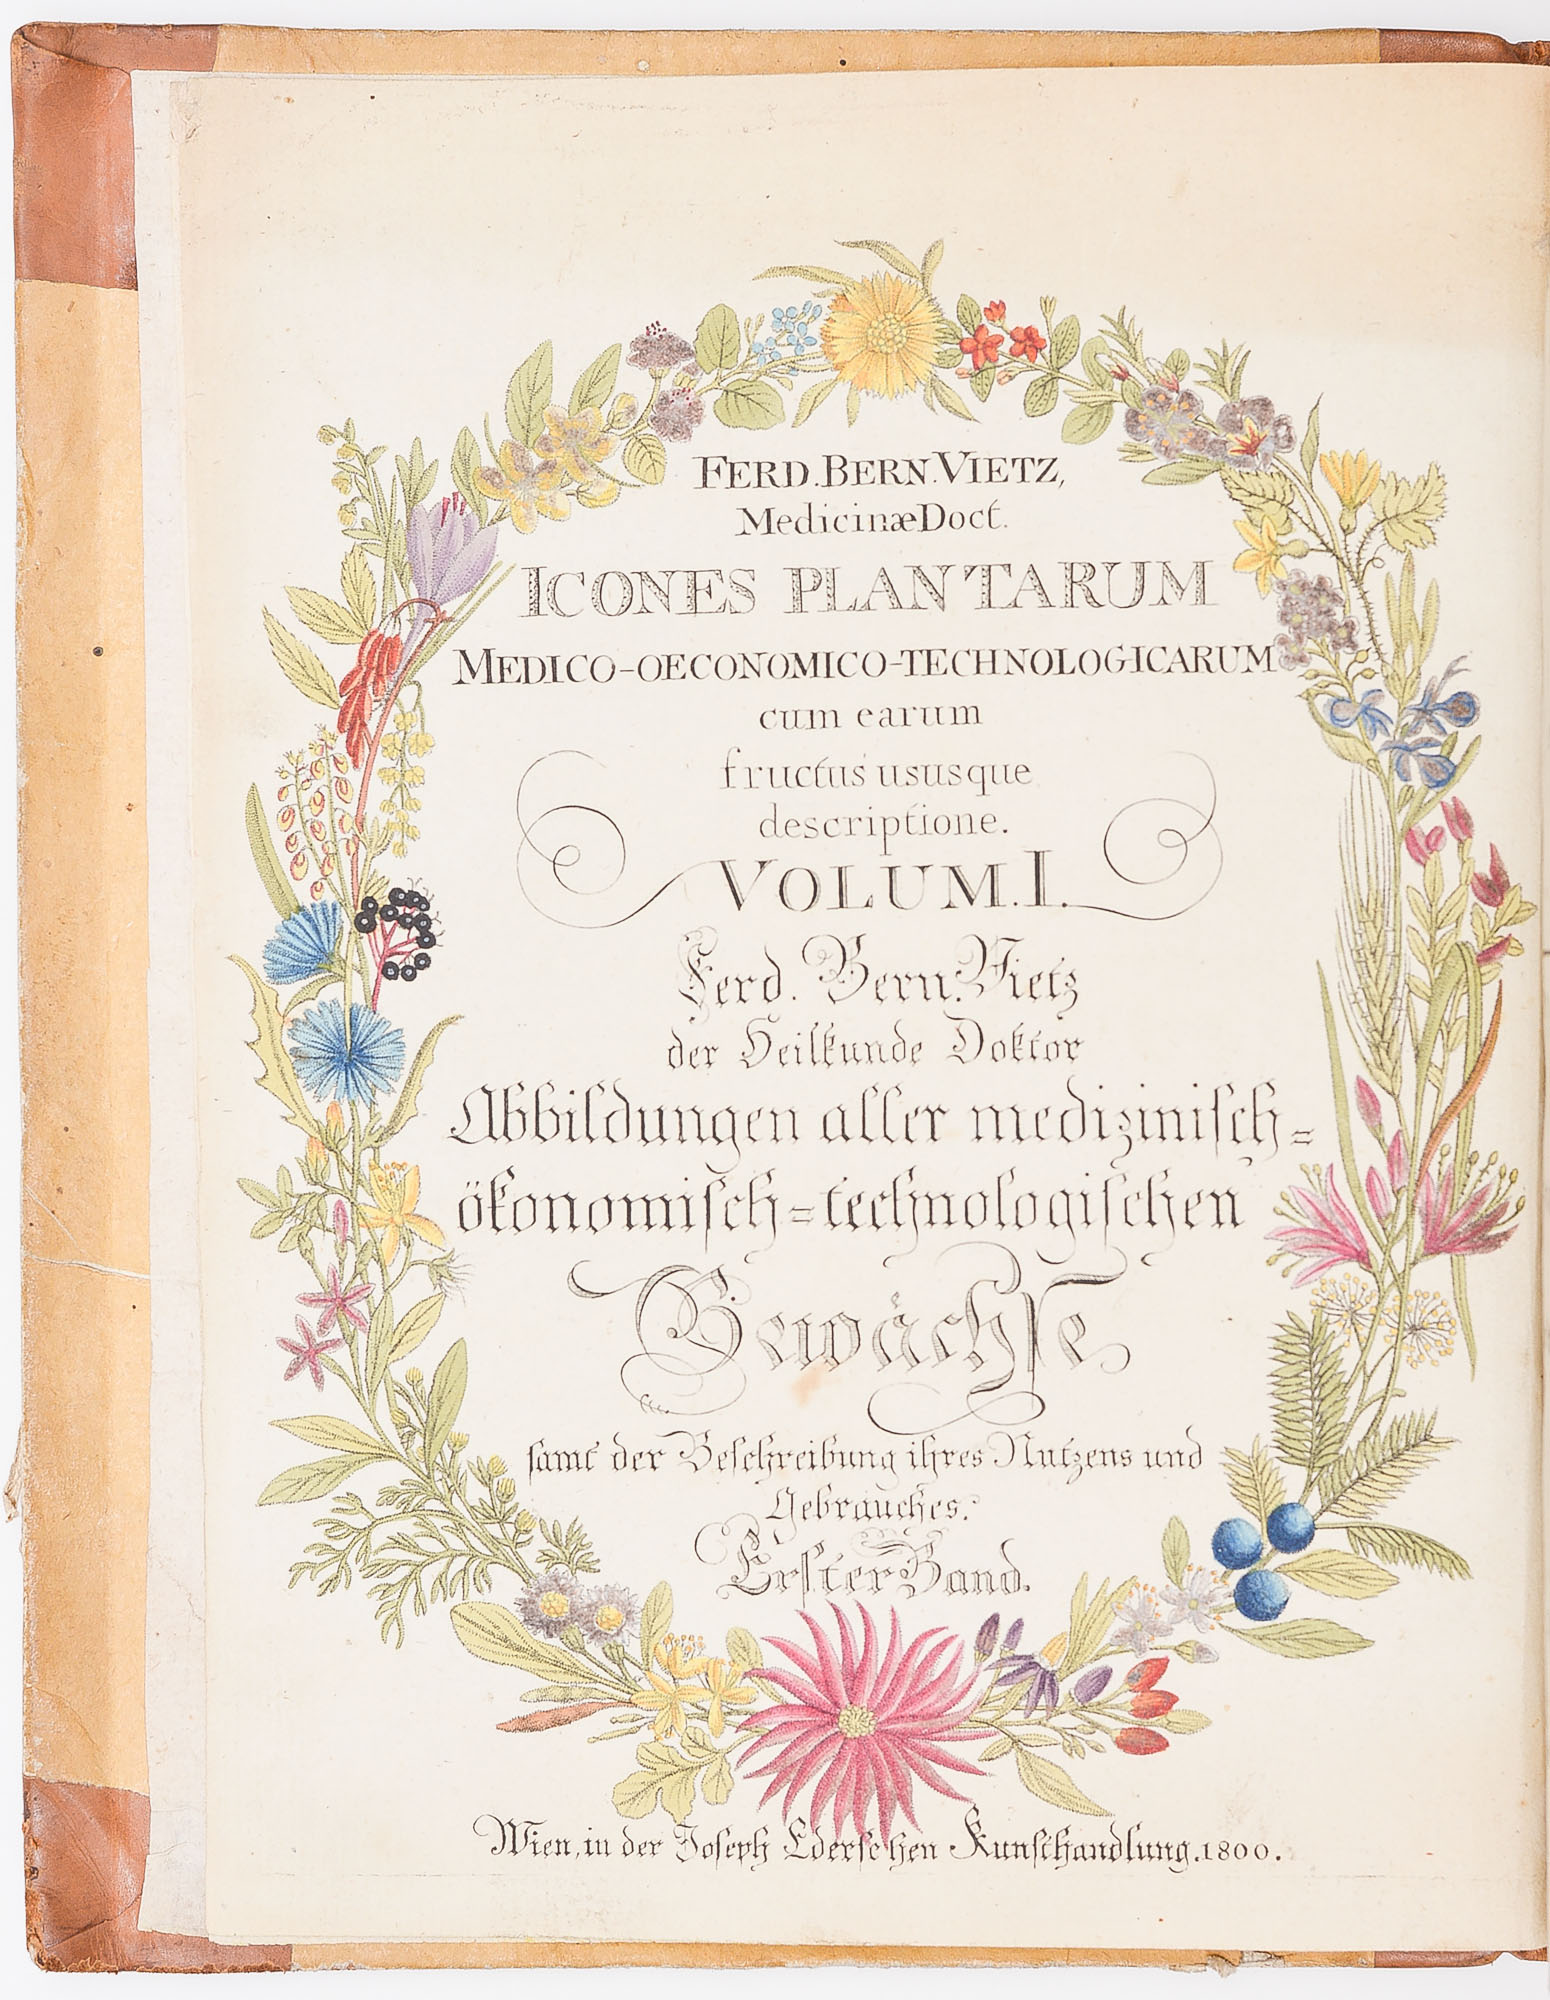 FERD. BERN. VIETZ,
Medicinæ Doct.
ICONES PLANTARUM
MEDICO-OECONOMICO-TECHNOLOGICARUM
cum earum
fructus ususque
descriptione.
VOLUM. I.
Ferd. Bern. Vietz
der Heilkunde Doktor
Abbildungen aller mediziniſch=
ökonomiſch=technologiſchen
Gewächſe
ſamt der Beſchreibung ihres Nutzens und
Gebrauches.
Erſter Band.
Wien, in der Joſeph Ederſchen Kunſthandlung. 1800.